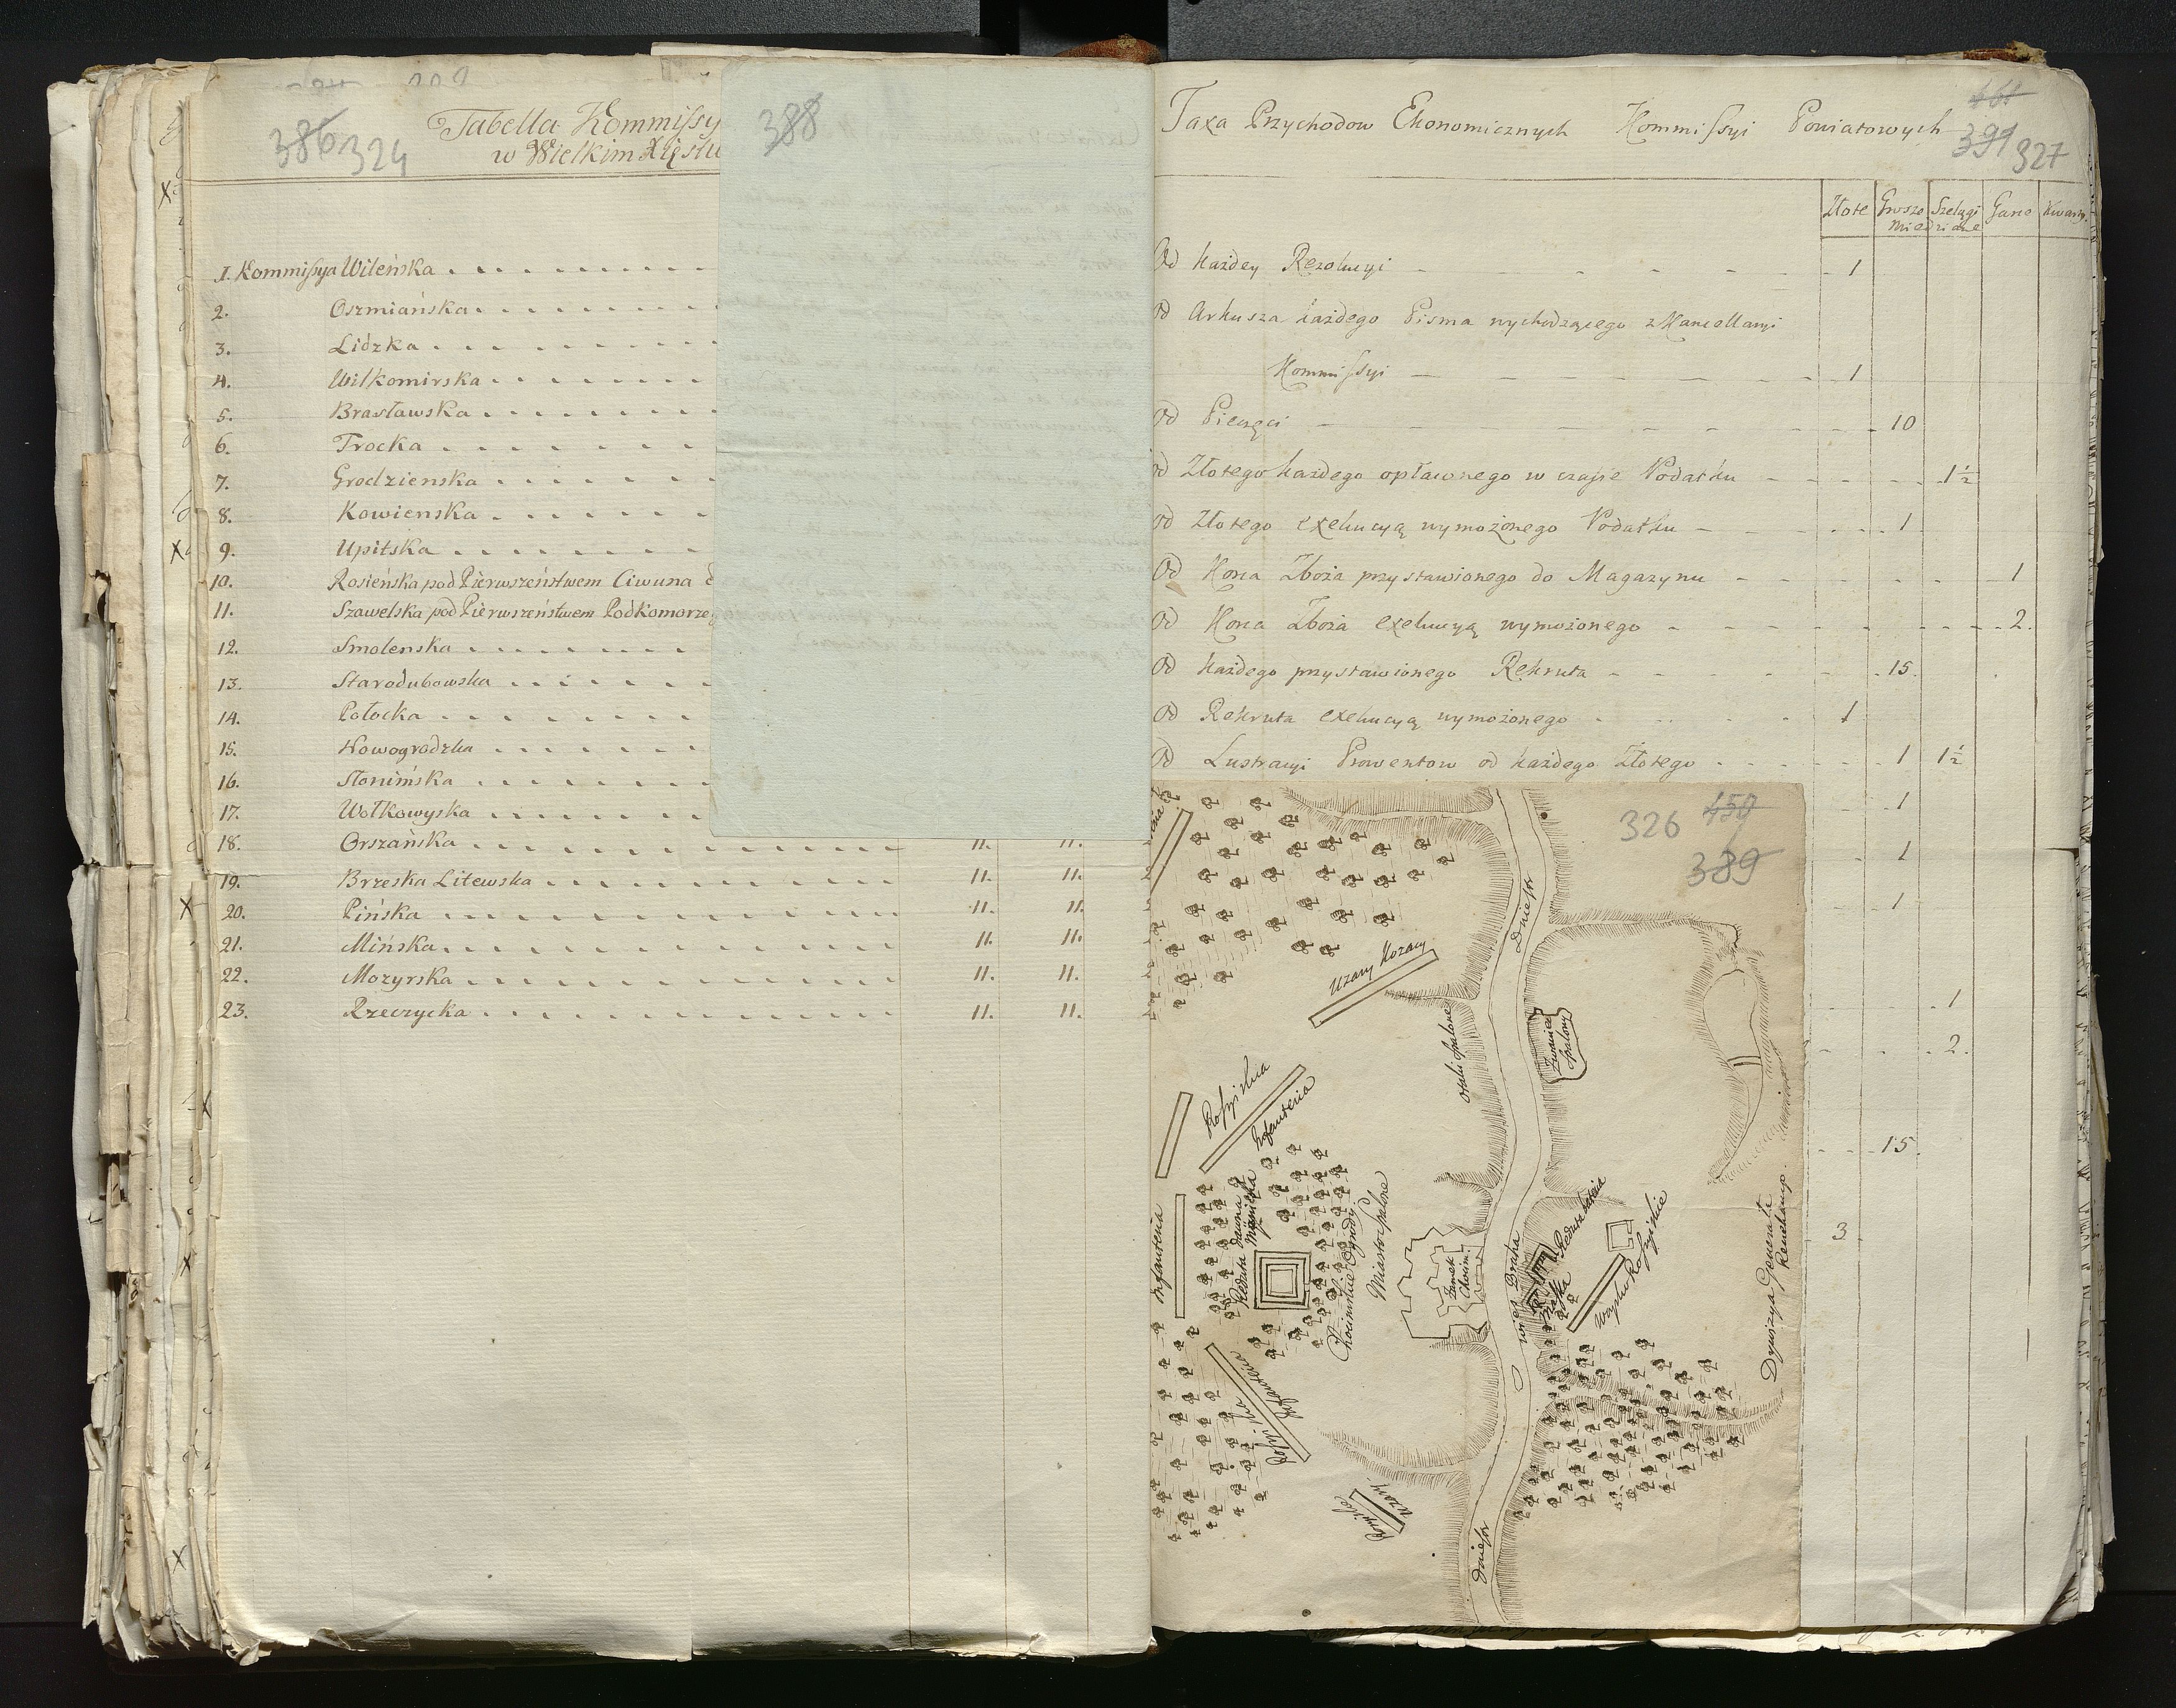 386 324
Tabella Kommissy
w Wielkim Xięstw
1. Kommissya Wileńska
2. Oszmiańska
3. Lidzka
4. Wilkomirska
5. Brasławska
6. Trocka
7. Grodzienska
8. Kowienska
9. Upitska
10. Rosieńska pod Pierwszeństwem Ciwuna
11. Szawelska pod Pierwszeństwem Podkomorze
12. Smolenska
13. Starodubowska
14. Połocka
15. Nowogrodzka
16. Słonimska
17. Wołkowyska
18. Orszańska 11. 11.
19. Brzeska Litewska 11. 11.
20. Pińska 11. 11.
21. Mińska 11. 11.
22. Mozyrska 11. 11.
23. Rzeczycka 11. 11.
388
461
391 327
Taxa Przychodow Ekonomicznych Kommissyi Powiatowych
Złote Grosze Szelągi Garce Kwarty
Miedziane
Od każdey Rezolucyi 1
Od Arkusza każdego Pisma wychodzącego z Kancellaryi
Kommissyi 1
Od Pieczęci 10
od Złotego każdego opłaconego w czasie Podatku 1½
od Złotego exekucyą wymożonego Podatku 1
Od Korca Zboża przystawionego do Magazynu 1
Od Korca Zboża exekucyą wymożonego 2.
Od każdego przystawionego Rekruta 15
Od Rekruta exekucyą wymożonego 1
Od Lustracyi Prowentow od każdego Złotego 1 1½
1
1
1
1
2.
15.
3
326 459
389
Dniestr
Uzary Kozacy
Osuki spalone
Zwaniec spalony
Rossyiska
Infanteria
Infanteria
Reduta dawna
Chocimskie Ogrody
Miasto spalone
Zamek Chocim.
Woysko Rossyiskie
Dywizya Generała
Rossyiska Infanteria
Uzary
Dniestr